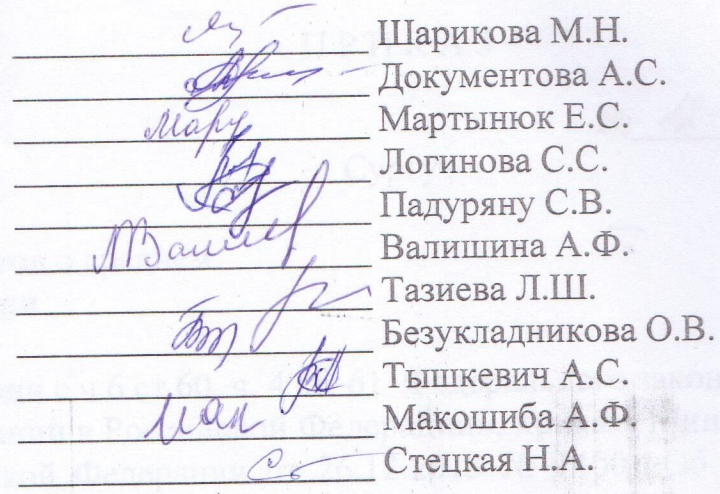 Шарикова М.Н.
Документова А.С.
Мару Мартынюк Е.С.
Логинова С.С.
Падуряну С.В.
Валишина А.Ф.
Тазиева Л.Ш.
Безукладникова О.В.
Тышкевич А.С.
Мак Макошиба А.Ф.
Стецкая Н.А.